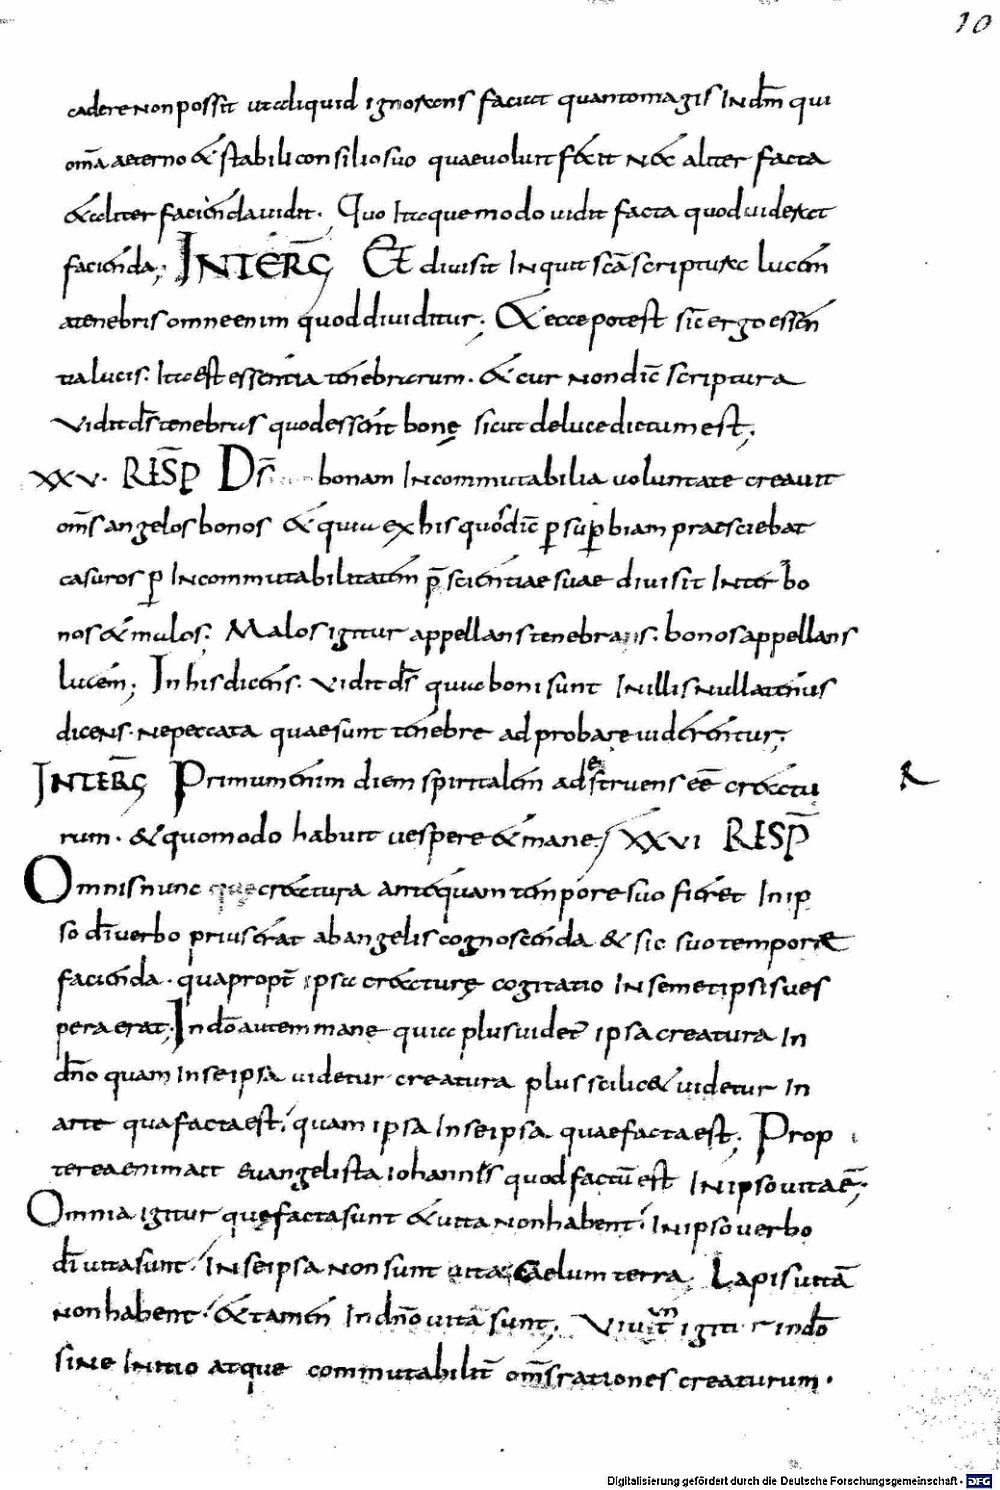 10
cadere non possit ut aliquid ignorans faciat quanto magis In dm̄ qui
om̄a aeterno & stabili consilio suo quae voluit fecit Nec aliter facta
& aliter facienda vidit. Quo Itaque modo vidit facta quod videret
facienda; INTERG̅ Et divisit Inquit scā scriptura lucem
a tenebris omne enim quod dividitur; & ecce potest sic̄ ergo essen
tia lucis. Ita est essentia tenebrarum. & cur non dic̄ scriptura
Vidit ds̄ tenebras quod essent bonę sicut de luce dictum est;
XXV. RESP̄ Ds̄ bonam Incommutabilia voluntate creavit
om̄s angelos bonos & quia ex his quosdā p̱ sup̱biam praesciebat
casuros p̱ Incommutabilitatem p̄scientiae suae divisit Inter bo
nos & malos; Malos igitur appellans tenebras. bonos appellans
lucem; In his dicens. vidit ds̄ quia boni sunt In illis nullatenus
dicens. ne peccata quae sunt tenebre adprobare viderentur;
INTERG̅ Primum enim diem spiritalem adstruens eē creatu
rum. & quomodo habuit vespere & mane; XXVI RESP̄
Omnis nunc que creatura antequam tempore suo fieret In ip
so dī verbo prius erat ab angelis cognoscenda & sic suo tempore
facienda. quapropt̄ ipsa creaturę cogitatio In semetipsis ves
pera erat; In dō autem mane quia plus videt̄ ipsa creatura In
dn̄o quam In se ipsa videtur creatura plus scilic& videtur In
arte qua facta est; quam ipsa In se ipsa quae facta est; Prop
terea enim ait Evangelista iohannes quod factū est In ipso vita ē;
Omnia igitur quę facta sunt & vita non habent; In ipso verbo
dī vita sunt; In se ipsa non sunt vita Caelum terra Lapis vitā
non habent; & tamen In dn̄o vitā sunt; Vivunt igitur in dō
sine Initio atque commutabilit̄ om̄s rationes creaturum.
Digitalisierung gefördert durch die Deutsche Forschungsgemeinschaft - DFG